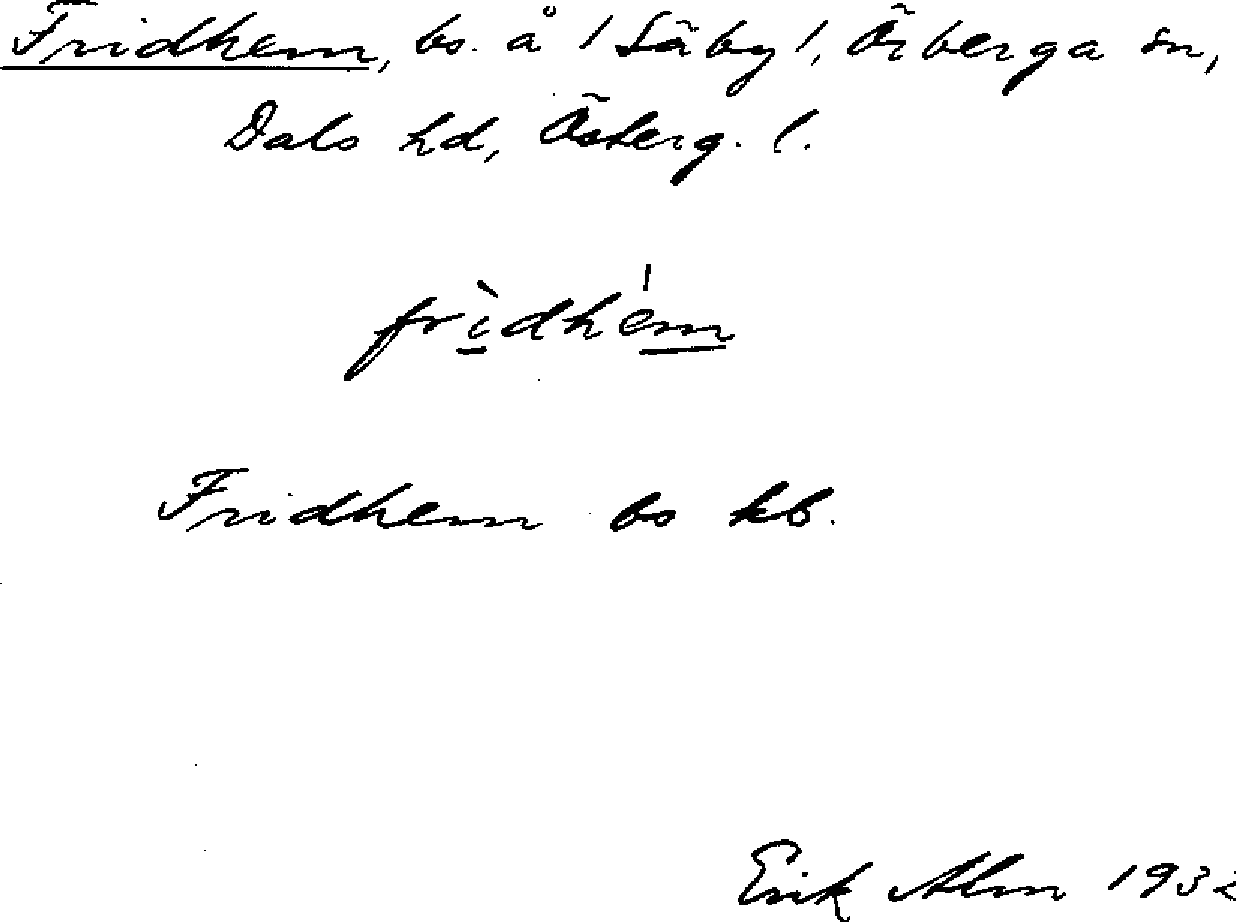 Fridhem, bs. å /Säby/, Örberga sn,
Dals hd, Österg. l.
frìdhém
Fridhem bs kb.
Erik Alm 1932